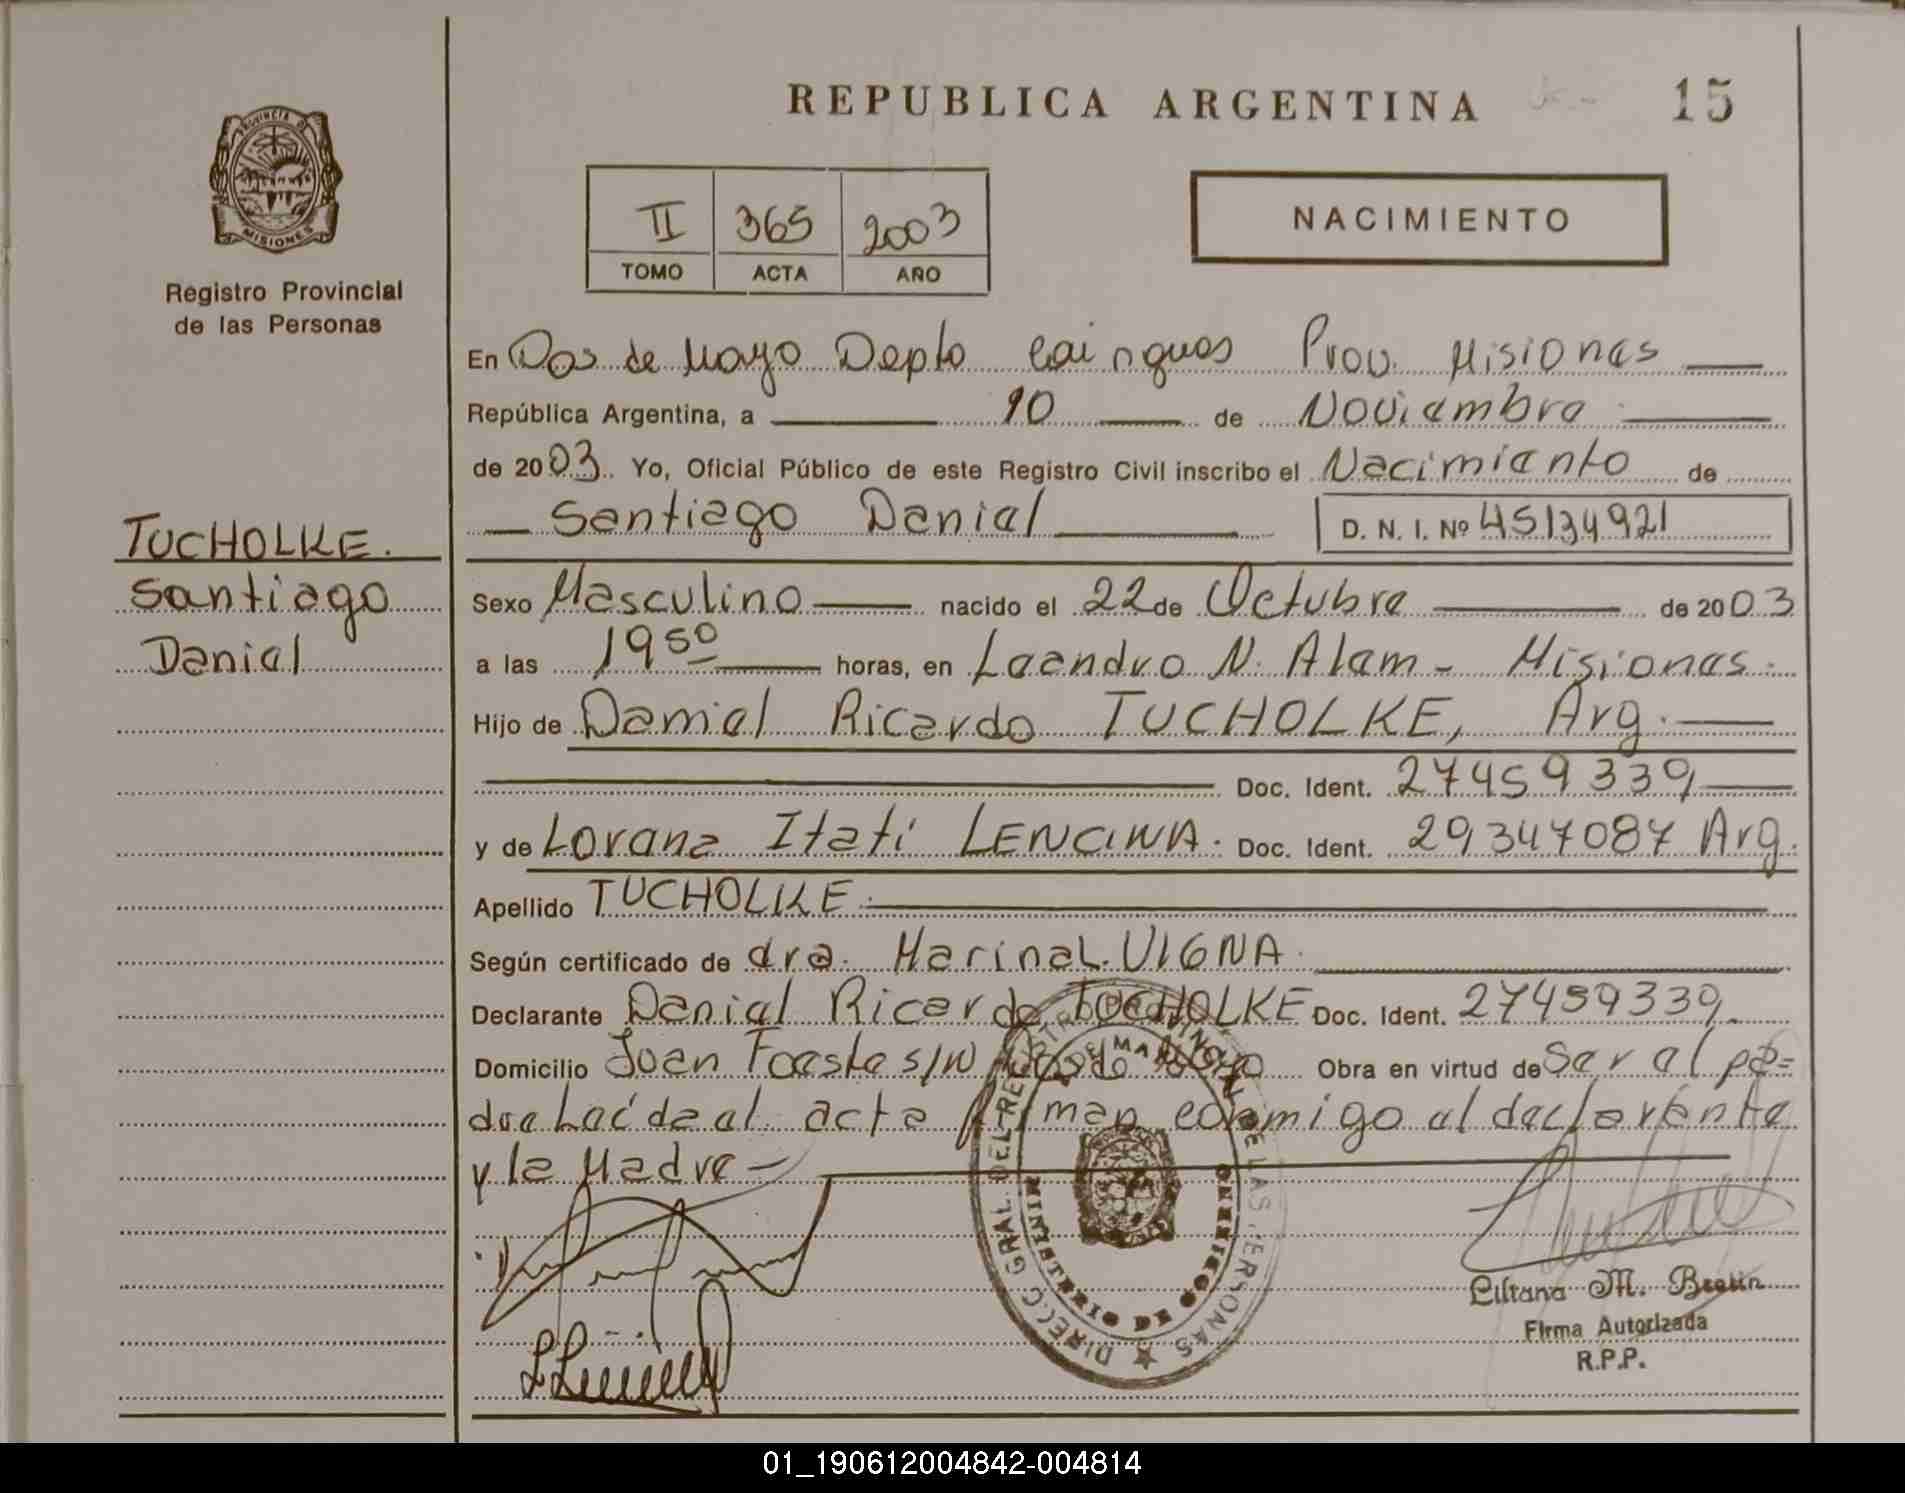 REPUBLICA ARGENTINA 15
PROVINCIA DE
MISIONES
Registro Provincial
de las Personas
II 365 2003
TOMO ACTA AÑO
NACIMIENTO
En Dos de Mayo Depto Cainguas Prov. Misiones
República Argentina, a 10 de Noviembre
de 2003. Yo, Oficial Público de este Registro Civil inscribo el Nacimiento de
Santiago Daniel D. N. I. Nº 45134921
TUCHOLKE.
Santiago
Daniel
Sexo Masculino nacido el 22 de Octubre de 2003
a las 19 50 horas, en Leandro N. Alem - Misiones.
Hijo de Daniel Ricardo TUCHOLKE, Arg.
Doc. Ident. 27459339
y de Lorena Itatí LENCINA. Doc. Ident. 29347087 Arg.
Apellido TUCHOLKE.
Según certificado de dra. Marina L. VIGNA.
Declarante Daniel Ricardo TUCHOLKE Doc. Ident. 27459339.
Domicilio Juan Foeste s/N Dos de Mayo Obra en virtud de Ser el pa=
dre Leída el acta firman conmigo el declarante
y la Madre -
DIRECC. GRAL. DEL REGISTRO PROVINCIAL DE LAS PERSONAS
MINISTERIO DE GOBIERNO
Liliana M. Breitin
Firma Autorizada
R.P.P.
01_190612004842-004814